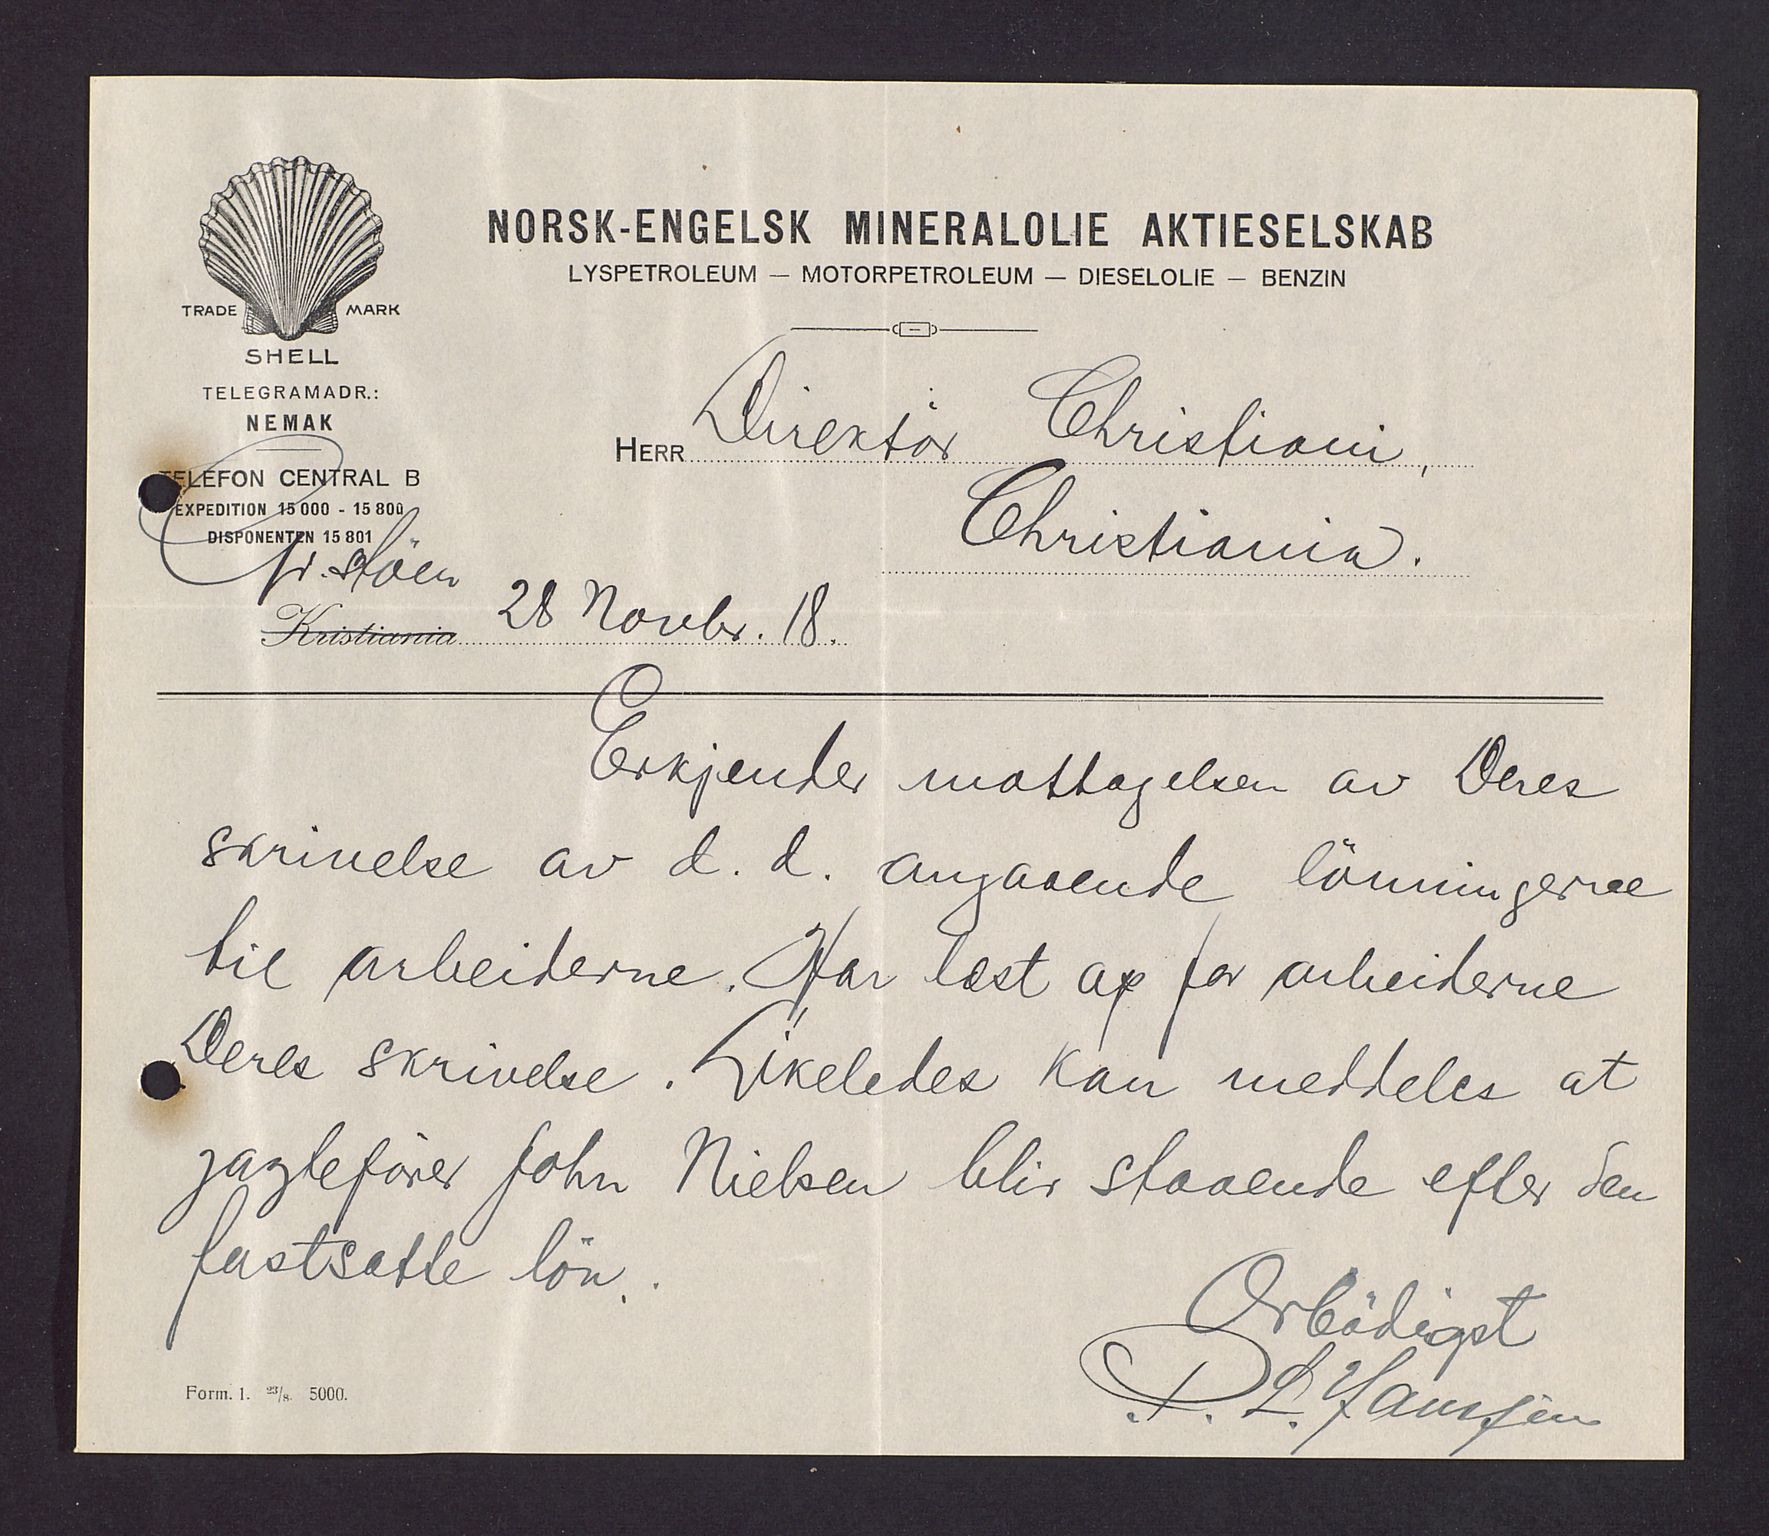 NORSK-ENGELSK MINERALOLIE AKTIESELSKAB
LYSPETROLEUM — MOTORPETROLEUM — DIESELOLIE — BENZIN
TRADE MARK
SHELL
TELEGRAMADR.:
NEMAK
TELEFON CENTRAL B
EXPEDITION 15 000 - 15 800
DISPONENTEN 15 801
HERR Direktör Christiani,
Christiania.
Kristiania 28 Novbr. 18.
Erkjender mottagelsen av Deres
skrivelse av d. d. angaaende lönningerne
til arbeiderne. Har læst op for arbeiderne
Deres skrivelse. Likeledes kan meddeles at
jagtefører John Nielsen blir staaende efter den
fastsatte lön.
Ærbödigst
P. L. Jansen
Form. 1. 23/8. 5000.